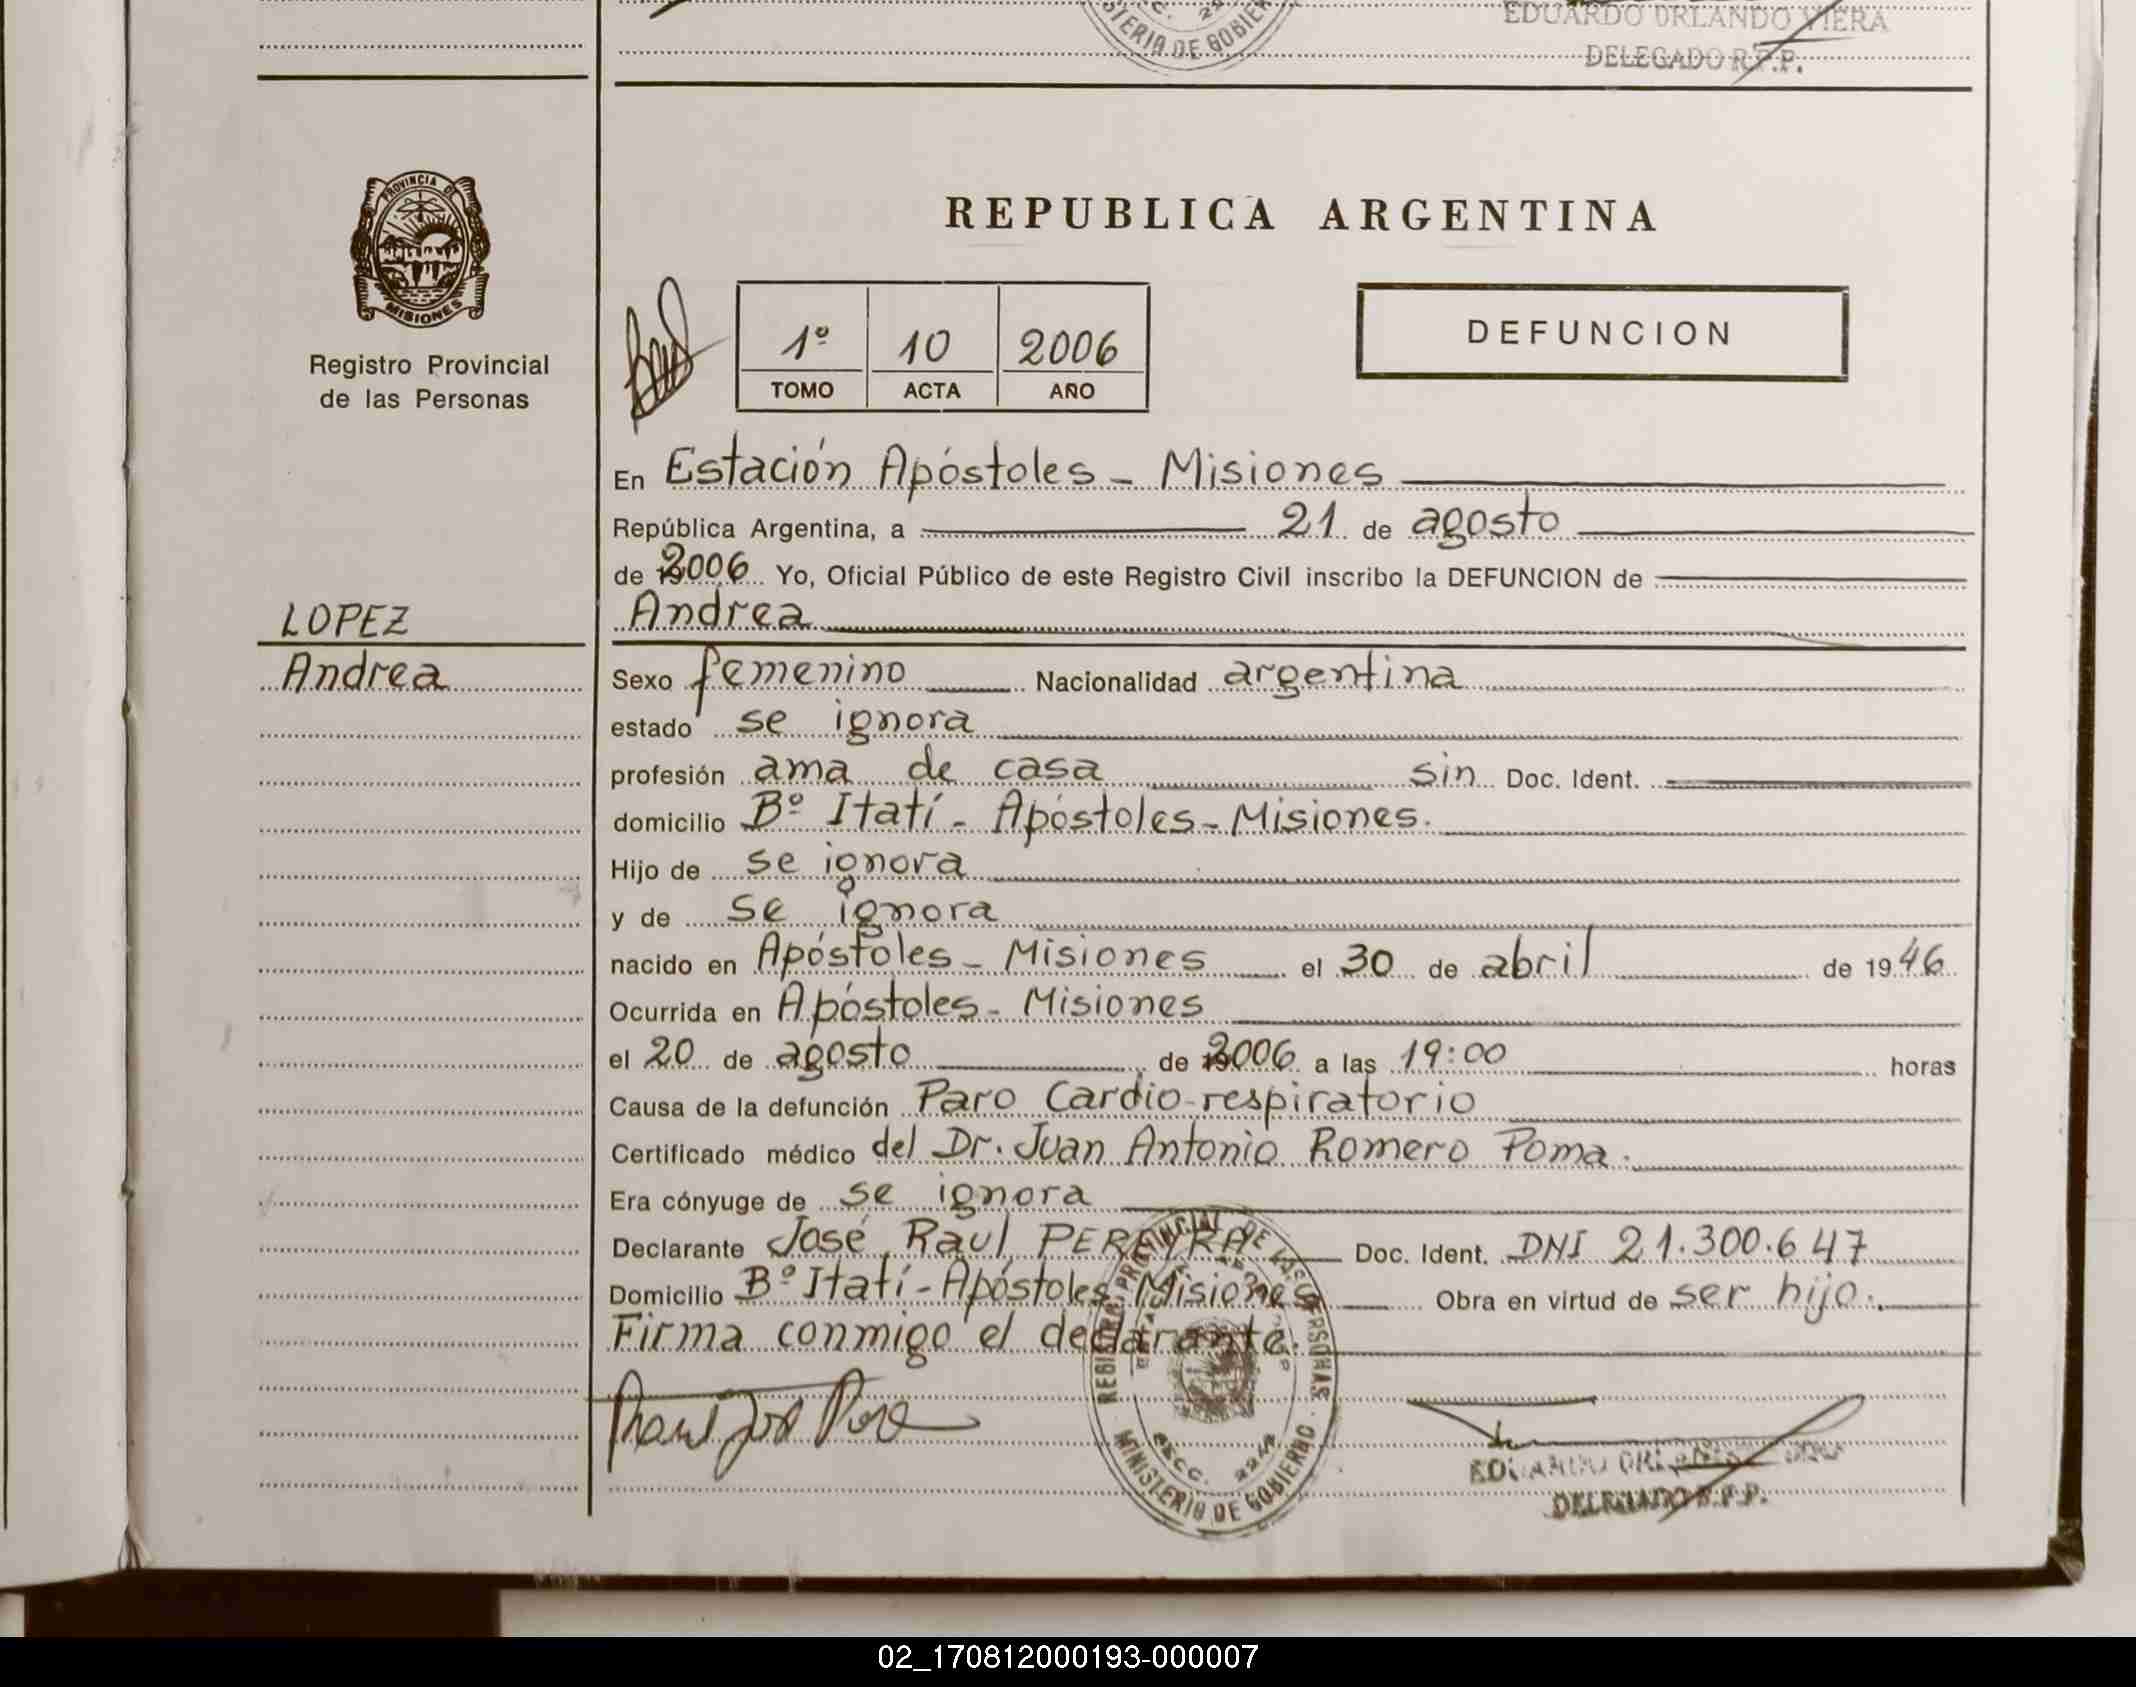 MINISTERIO DE GOBIERNO
EDUARDO ORLANDO VIERA
DELEGADO R.P.P.
PROVINCIA DE
MISIONES
Registro Provincial
de las Personas
REPUBLICA ARGENTINA
1º 10 2006
TOMO ACTA AÑO
DEFUNCION
En Estación Apóstoles - Misiones
República Argentina, a 21 de agosto
de 2006 Yo, Oficial Público de este Registro Civil inscribo la DEFUNCION de
LOPEZ
Andrea
Andrea
Sexo femenino Nacionalidad argentina
estado se ignora
profesión ama de casa sin Doc. Ident.
domicilio Bº Itatí - Apóstoles - Misiones.
Hijo de se ignora
y de se ignora
nacido en Apóstoles - Misiones el 30 de abril de 1946
Ocurrida en Apóstoles - Misiones
el 20 de agosto de 2006 a las 19:00 horas
Causa de la defunción Paro Cardio-respiratorio
Certificado médico del Dr. Juan Antonio Romero Poma.
Era cónyuge de se ignora
Declarante José Raul PEREYRA Doc. Ident. DNI 21.300.647
Domicilio Bº Itatí - Apóstoles Misiones Obra en virtud de ser hijo.
Firma conmigo el declarante.
REGISTRO PROVINCIAL DE LAS PERSONAS
MINISTERIO DE GOBIERNO
EDUARDO ORLANDO VIERA
DELEGADO R.P.P.
02_170812000193-000007